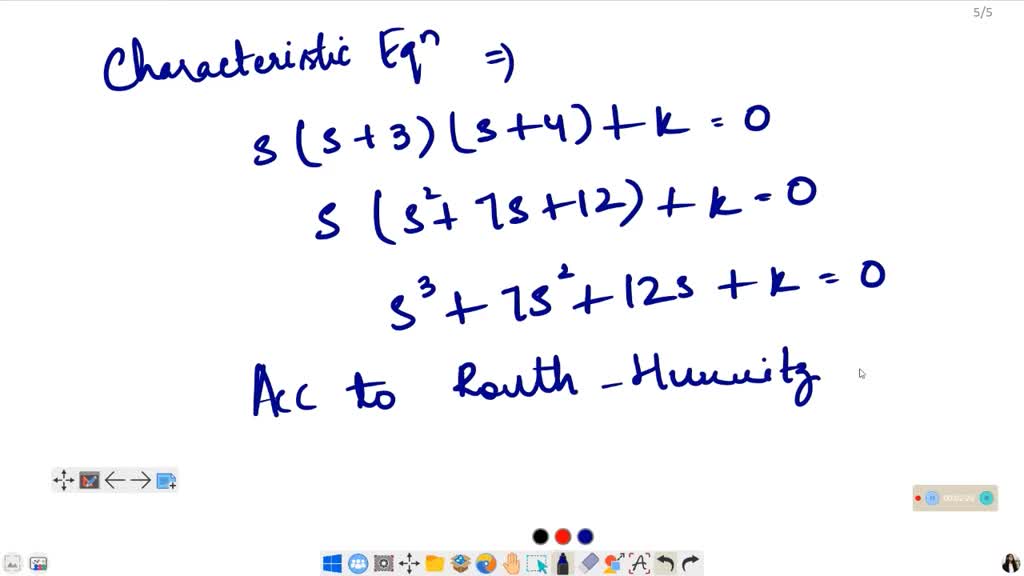 5/5
Characteristic Eqⁿ ⇒
s(s+3)(s+4)+k=0
s(s²+7s+12)+k=0
s³+7s²+12s+k=0
Acc to Routh-Hurwitz